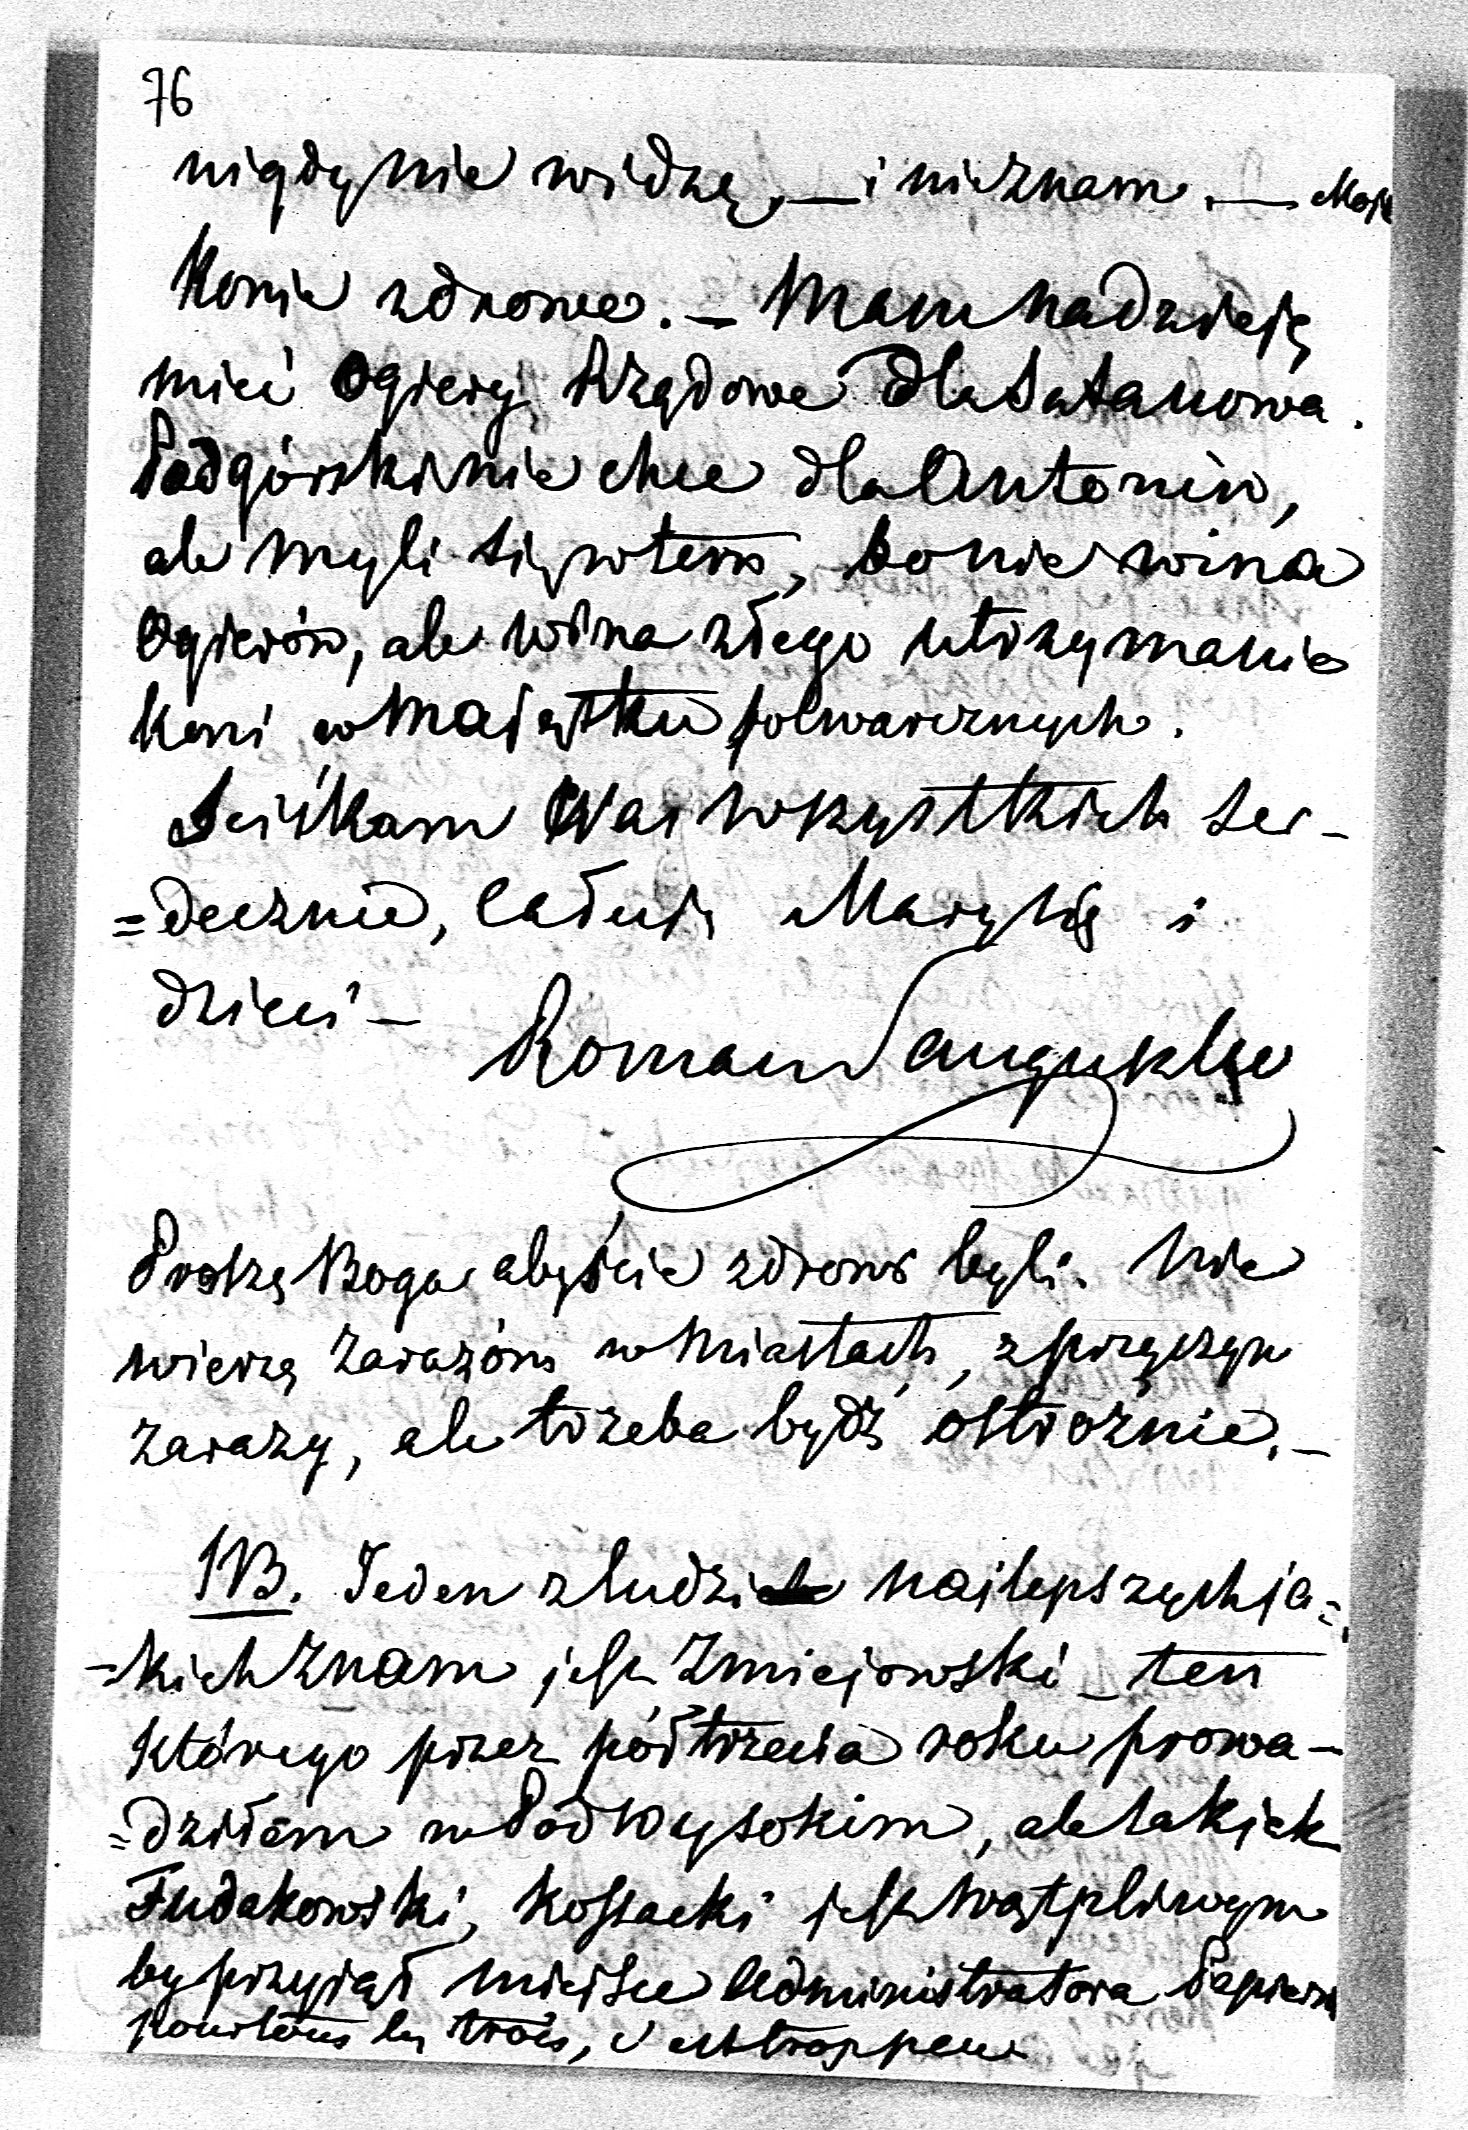 76
nigdy nie widzę, — i nie znam. — Moje
Konie zdrowe. — Mam nadzieję
mieć Ogiery Rządowe dla Satanowa.
Podgórski nie chce dla Antonin,
ale myli się w tem, bo nie wina
Ogierów, ale wina złego utrzymania
koni w Majątku folwarcznych.
Sciśkam Was wszystkich ser-
=decznie, całuję Marylkę i
dzieci —
Roman Sanguszko
Proszę Boga abyście zdrowi byli. Nie
wierzę zarazóm w Miastach, z przyczyn
zarazy, ale trzeba bydź óstrożnie. —
NB. Jeden z ludzi najlepszych ja=
=kich znam jest Zmiejowski — ten
którego przez półtrzecia roku prowa-
=dziłem w Podwysokim, ale tak jak
Fudakowski, Kossacki jest wątpliwym
by przyjął miejsce Administratora
pour tous les trois, c'est trop peu